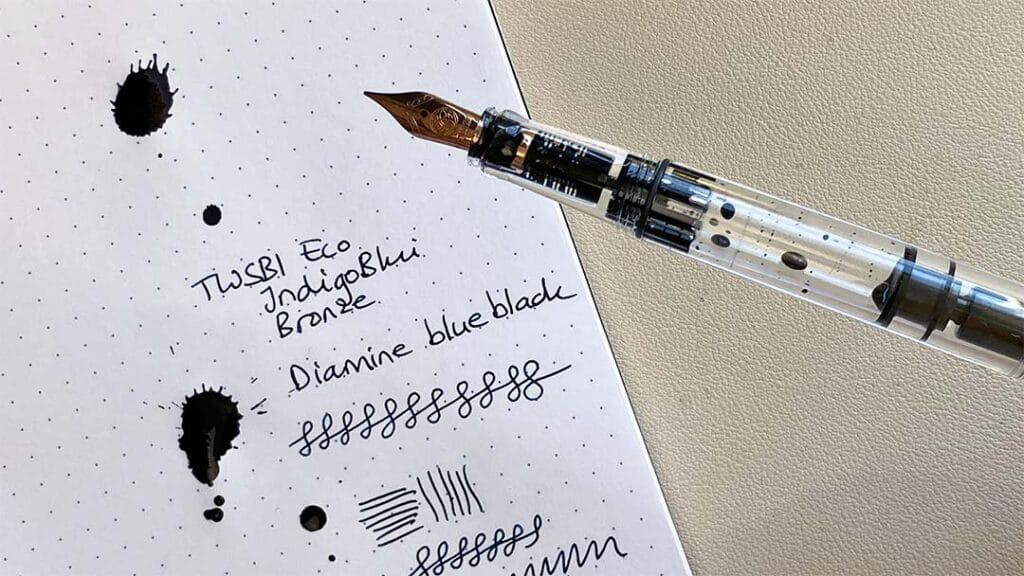 TWSBI Eco
IndigoBlu
Bronze
Diamine blue black